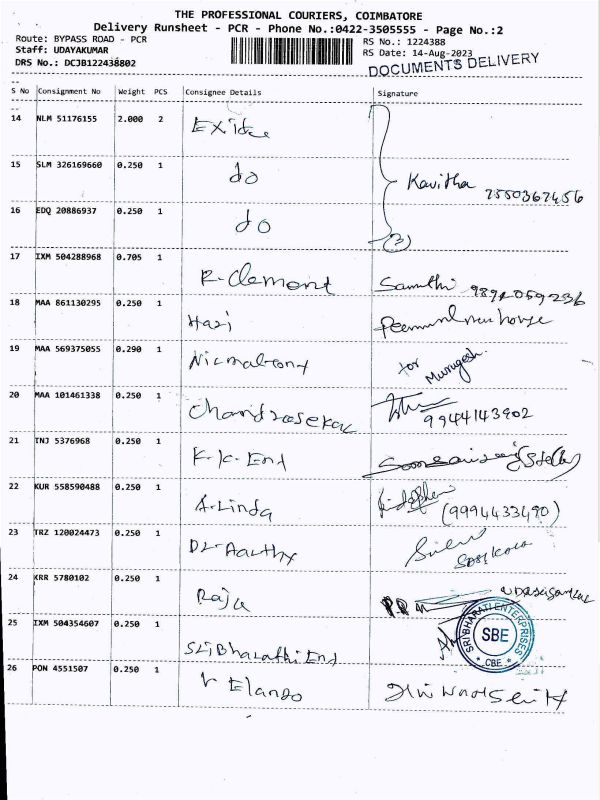 THE PROFESSIONAL COURIERS, COIMBATORE
Delivery Runsheet - PCR - Phone No.:0422-3505555 - Page No.:2
Route: BYPASS ROAD - PCR
RS No.: 1224388
Staff: UDAYAKUMAR
RS Date: 14-Aug-2023
DRS No.: DCJB122438802
DOCUMENTS DELIVERY
S No Consignment No Weight PCS Consignee Details Signature
14 NLM 51176155 2.000 2 Exide
15 SLM 326169660 0.250 1 do Kavitha
16 EDQ 20886937 0.250 1 do
(3)
17 IXM 504288968 0.705 1 R-Clemont
18 MAA 861130295 0.250 1 Hari
19 MAA 569375055 0.290 1 for Murugesh
20 MAA 101461338 0.250 1 Chandrasekar 9944143902
21 TNJ 5376968 0.250 1 K-K-Ent
22 KUR 558590488 0.250 1 A-Linda (9994433490)
23 TRZ 120024473 0.250 1 Dr-Aarthy
24 KRR 5780102 0.250 1 Raja
25 IXM 504354607 0.250 1 SriBharathi Ent SRI BHARATI ENTERPRISES SBE * CBE *
26 PON 4551507 0.250 1